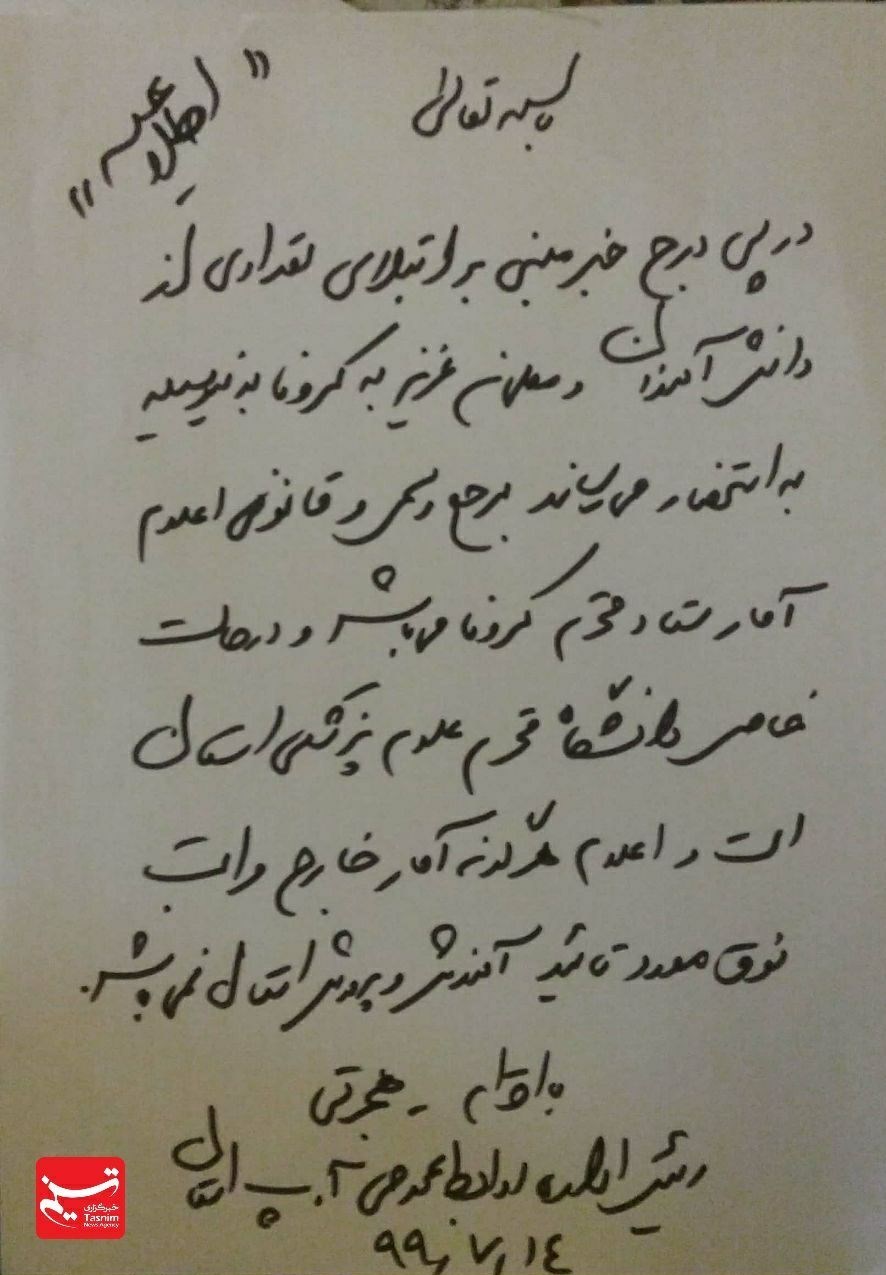 بسمه تعالی
" اطلاعیه "
در پی درج خبر مبنی بر ابتلای تعدادی از
دانش آموزان و معلمان عزیز به کرونا بدینوسیله
به استحضار می رساند مرجع رسمی و قانونی اعلام
آمار ستاد محترم کرونا می باشد و در حالت
خاص دانشگاه محترم علوم پزشکی استان
است و اعلام هرگونه آمار خارج مراتب
فوق مورد تائید آموزش و پرورش استان نمی باشد.
با احترام - هجرتی
رئیس اداره روابط عمومی آ.پ استان
۹۹/۷/۱٤
تسنیم
خبرگزاری
Tasnim
News Agency